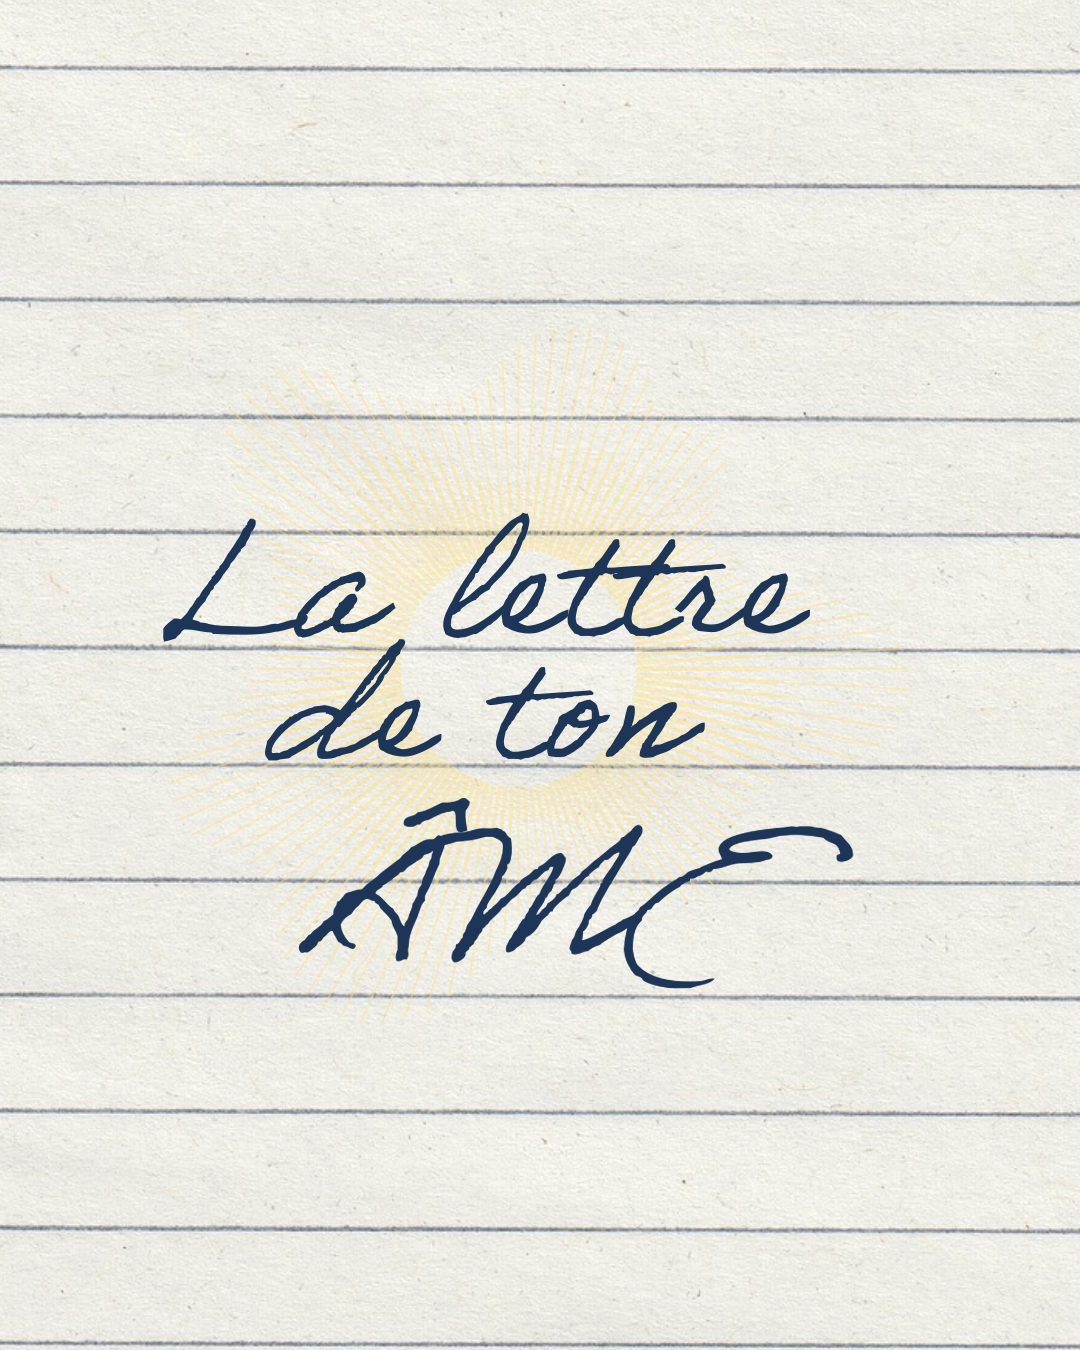 La lettre
de ton
ÂME